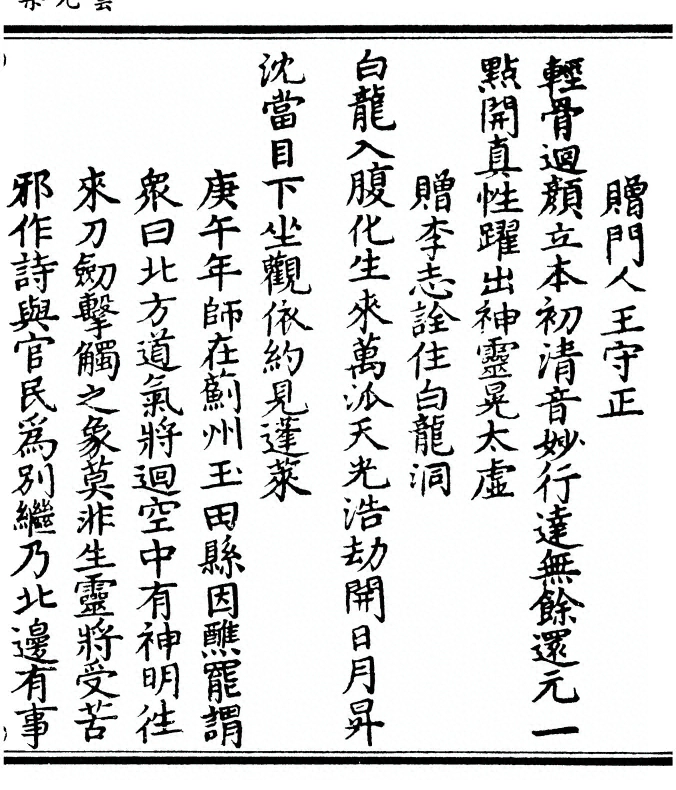 贈門人王守正
輕骨迴顏立本初清音妙行達無餘還元一
點開真性躍出神靈晃太虛
贈李志詮住白龍洞
白龍入腹化生來萬派天光浩劫開日月昇
沈當目下坐觀依約見蓬萊
庚午年師在薊州玉田縣因醮罷謂
衆曰北方道氣將迴空中有神明徃
來刀劒擊觸之象莫非生靈將受苦
邪作詩與官民爲別繼乃北邊有事